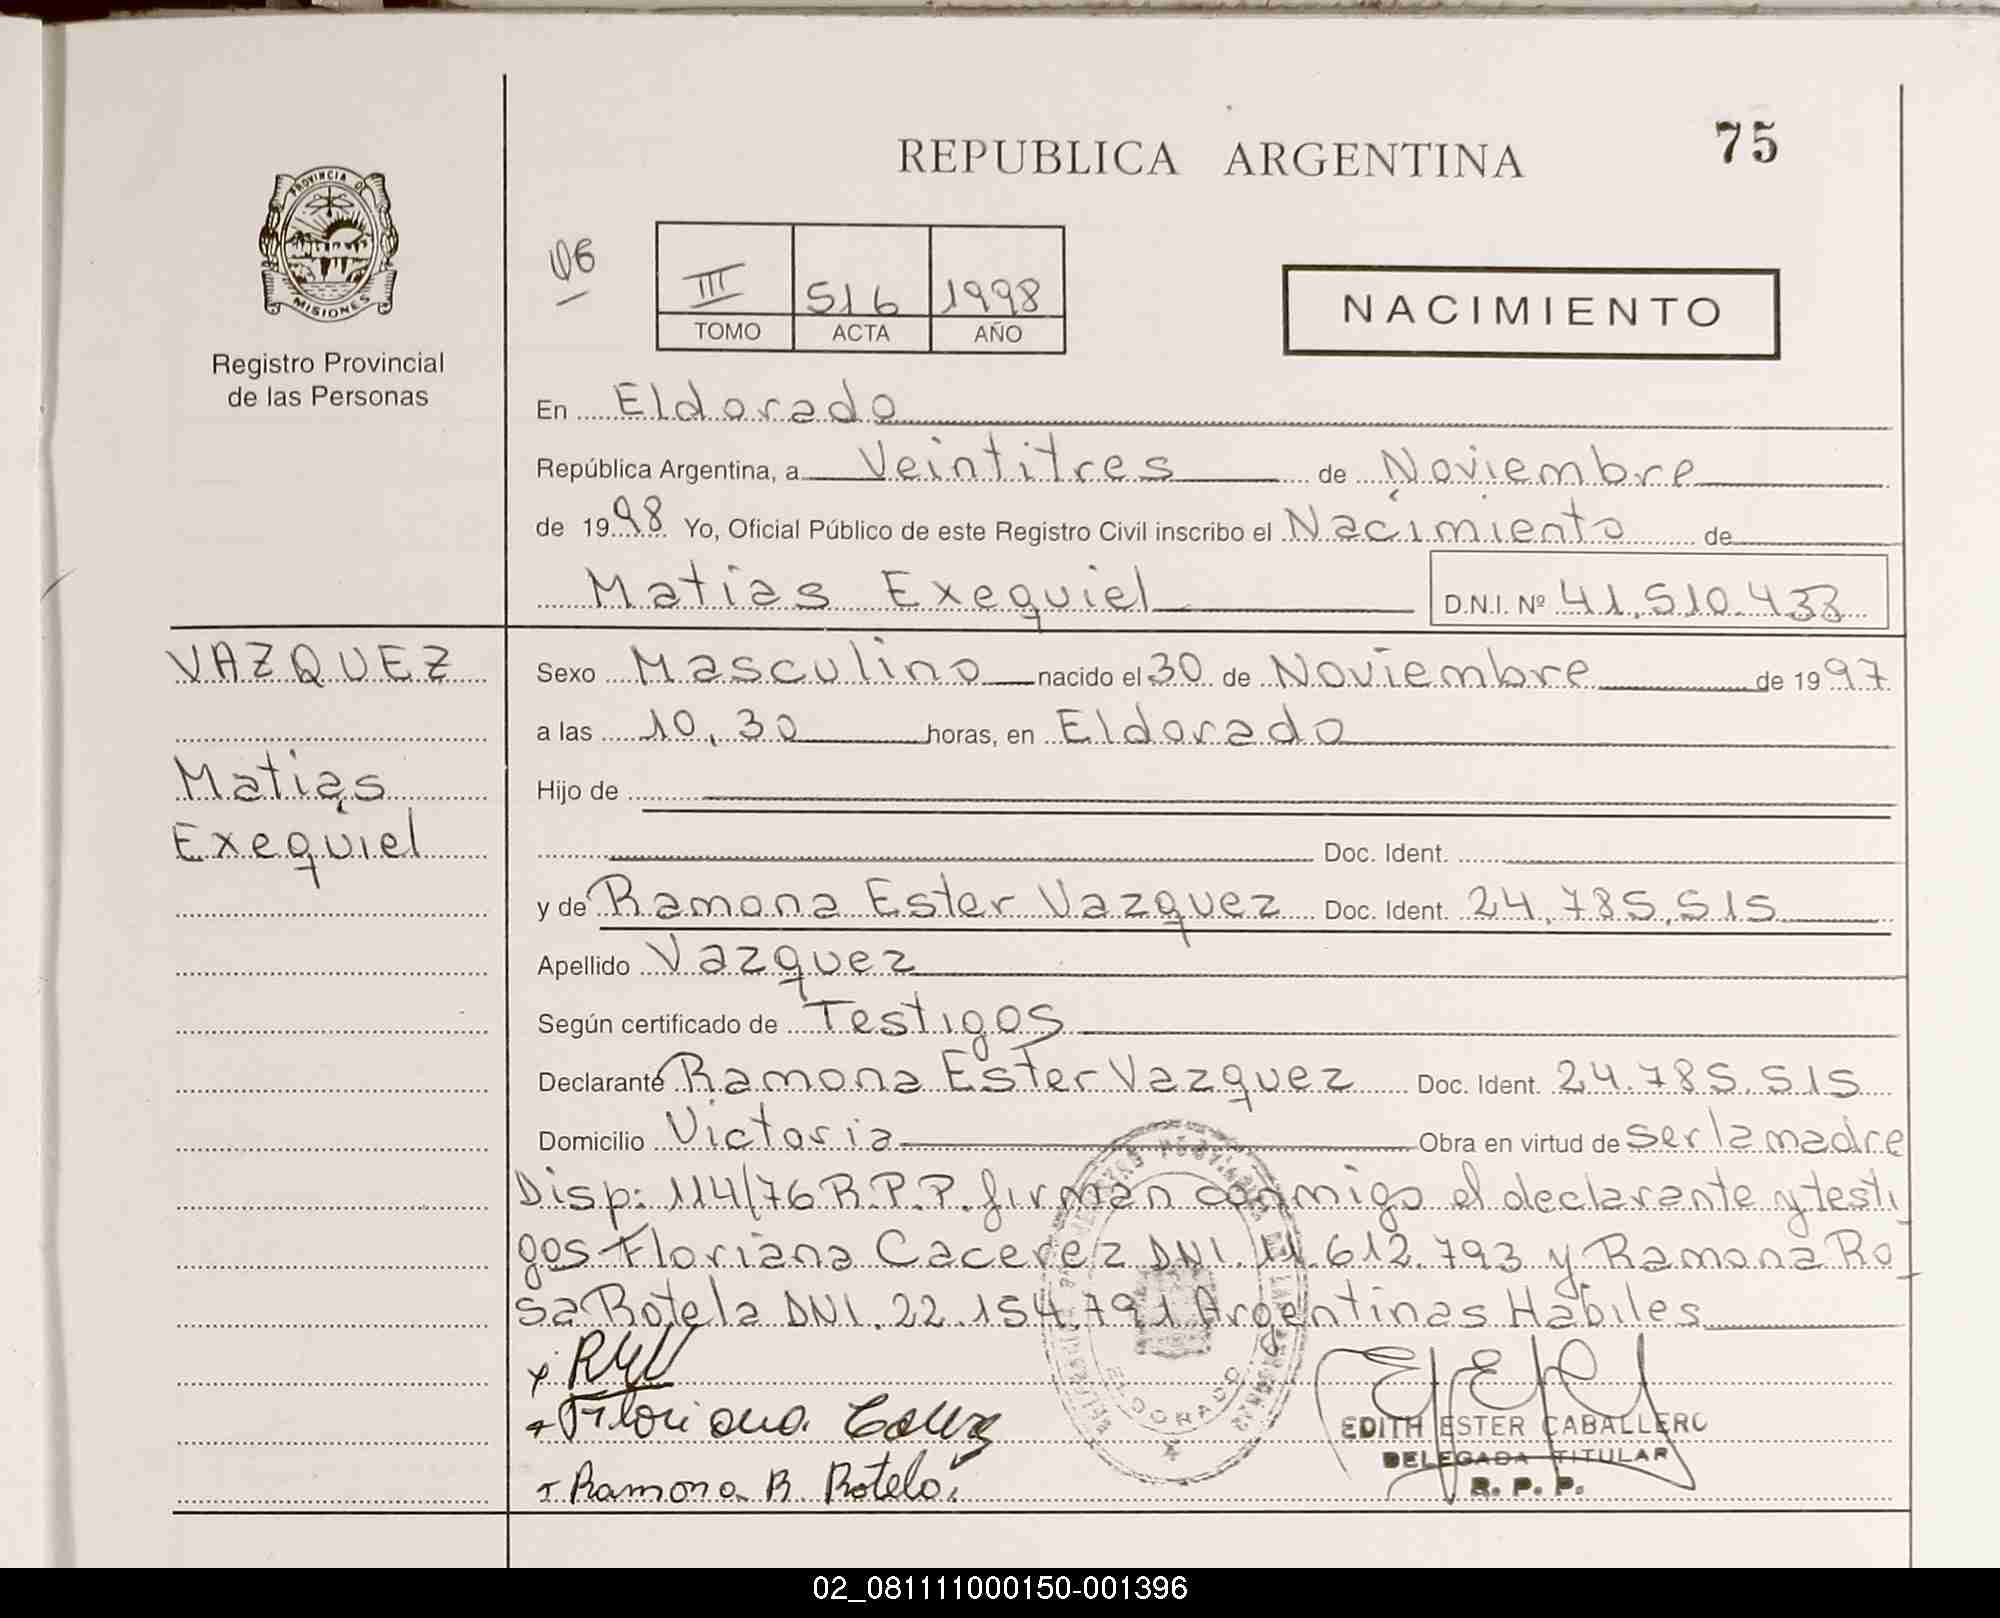 REPUBLICA ARGENTINA
75
PROVINCIA DE
MISIONES
Registro Provincial
de las Personas
III 516 1998
TOMO ACTA AÑO
NACIMIENTO
En Eldorado
República Argentina, a Veintitres de Noviembre
de 1998 Yo, Oficial Público de este Registro Civil inscribo el Nacimiento de
Matias Exequiel D.N.I. Nº 41.510.433
VAZQUEZ
Matias
Exequiel
Sexo Masculino nacido el 30 de Noviembre de 1997
a las 10,30 horas, en Eldorado
Hijo de
Doc. Ident.
y de Ramona Ester Vazquez Doc. Ident. 24.785.515
Apellido Vazquez
Según certificado de Testigos
Declarante Ramona Ester Vazquez Doc. Ident. 24.785.515
Domicilio Victoria Obra en virtud de ser la madre
Disp: 114/76 R.P.P. firman conmigo el declarante y testi
gos Floriana Cacerez DNI. 11.612.793 y Ramona Ro
sa Rotela DNI. 22.154.791 Argentinas Habiles
REV
Floriana
Ramona R Rotela
ELDORADO
EDITH ESTER CABALLERO
DELEGADA TITULAR
R. P. P.
02_081111000150-001396